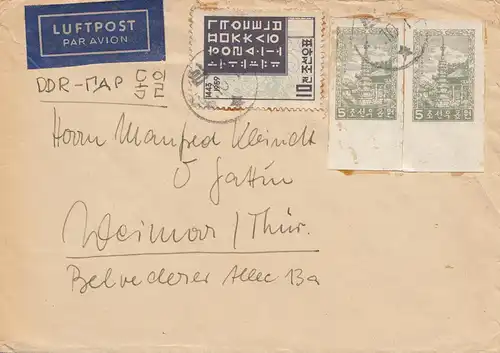 LUFTPOST
PAR AVION
DDR-ПАР 동독일
1443 1959
10전 조선우표
5 조선우표 전
5 조선우표 전
Herrn Manfred Kleindt
u Gattin
Weimar / Thür.
Belvederer Allee 13a